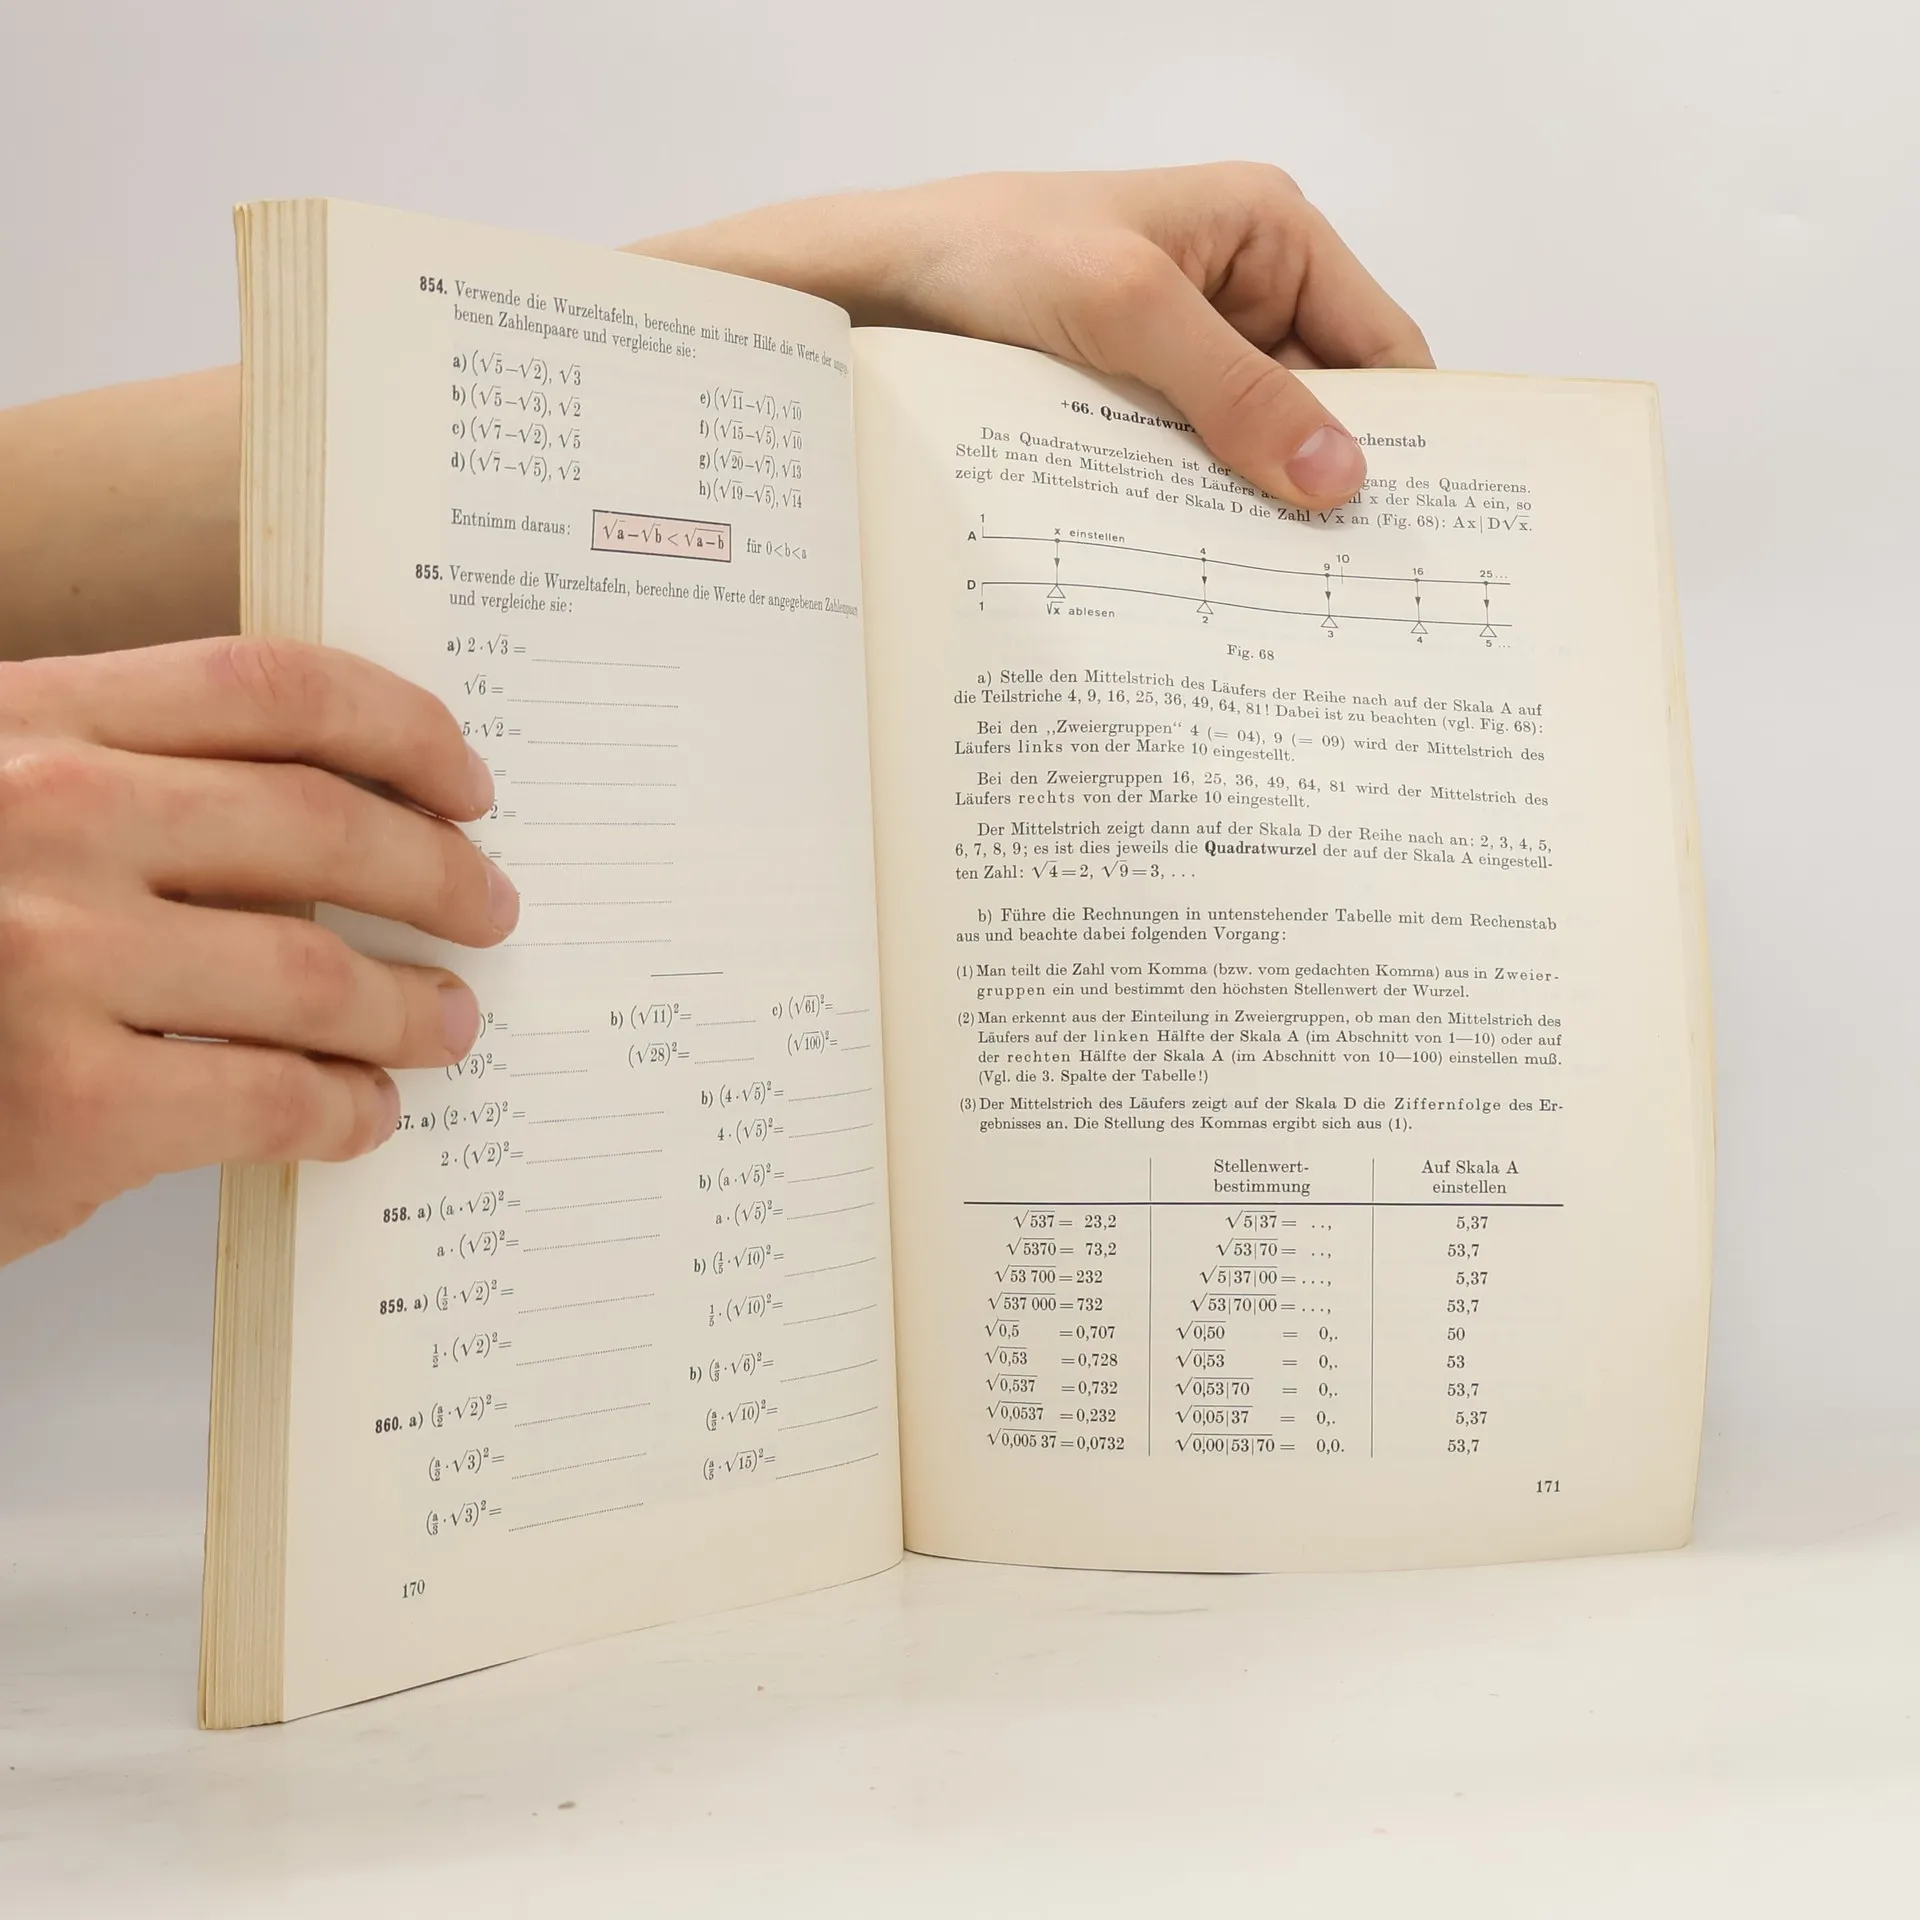 854. Verwende die Wurzeltafeln, berechne mit ihrer Hilfe die Werte der
benen Zahlenpaare und vergleiche sie:
a) (√5–√2), √3
b) (√5–√3), √2
c) (√7–√2), √5
d) (√7–√5), √2
e) (√11–√1), √10
f) (√15–√5), √10
g) (√20–√7), √13
h) (√19–√5), √14
Entnimm daraus: √a–√b < √a–b für 0<b<a
855. Verwende die Wurzeltafeln, berechne die Werte der angegebenen Zahlenpaare
und vergleiche sie:
a) 2·√3 =
√6 =
5·√2 =
=
2 =
=
)²= b) (√11)²= c) (√61)²=
(√3)²= (√28)²= (√100)²=
57. a) (2·√2)²= b) (4·√5)²=
2·(√2)²= 4·(√5)²=
858. a) (a·√2)²= b) (a·√5)²=
a·(√2)²= a·(√5)²=
859. a) (1/2·√2)²= b) (1/5·√10)²=
1/2·(√2)²= 1/5·(√10)²=
860. a) (a/2·√2)²= b) (a/3·√6)²=
(a/2·√3)²= (a/2·√10)²=
(a/3·√3)²= (a/5·√15)²=
170
+66. Quadratwur chenstab
Das Quadratwurzelziehen ist der gang des Quadrierens.
Stellt man den Mittelstrich des Läufers x der Skala A ein, so
zeigt der Mittelstrich auf der Skala D die Zahl √x an (Fig. 68): Ax|D√x.
1 x einstellen 4 9 10 16 25...
A
D
1 √x ablesen 2 3 4 5 ...
Fig. 68
a) Stelle den Mittelstrich des Läufers der Reihe nach auf der Skala A auf
die Teilstriche 4, 9, 16, 25, 36, 49, 64, 81! Dabei ist zu beachten (vgl. Fig. 68):
Bei den „Zweiergruppen“ 4 (= 04), 9 (= 09) wird der Mittelstrich des
Läufers links von der Marke 10 eingestellt.
Bei den Zweiergruppen 16, 25, 36, 49, 64, 81 wird der Mittelstrich des
Läufers rechts von der Marke 10 eingestellt.
Der Mittelstrich zeigt dann auf der Skala D der Reihe nach an: 2, 3, 4, 5,
6, 7, 8, 9; es ist dies jeweils die Quadratwurzel der auf der Skala A eingestell-
ten Zahl: √4=2, √9=3, ...
b) Führe die Rechnungen in untenstehender Tabelle mit dem Rechenstab
aus und beachte dabei folgenden Vorgang:
(1) Man teilt die Zahl vom Komma (bzw. vom gedachten Komma) aus in Zweier-
gruppen ein und bestimmt den höchsten Stellenwert der Wurzel.
(2) Man erkennt aus der Einteilung in Zweiergruppen, ob man den Mittelstrich des
Läufers auf der linken Hälfte der Skala A (im Abschnitt von 1—10) oder auf
der rechten Hälfte der Skala A (im Abschnitt von 10—100) einstellen muß.
(Vgl. die 3. Spalte der Tabelle!)
(3) Der Mittelstrich des Läufers zeigt auf der Skala D die Ziffernfolge des Er-
gebnisses an. Die Stellung des Kommas ergibt sich aus (1).
Stellenwert- Auf Skala A
bestimmung einstellen
√537 = 23,2 √5|37 = .., 5,37
√5370 = 73,2 √53|70 = .., 53,7
√53 700 = 232 √5|37|00 = ..., 5,37
√537 000 = 732 √53|70|00 = ..., 53,7
√0,5 = 0,707 √0,|50 = 0,. 50
√0,53 = 0,728 √0,|53 = 0,. 53
√0,537 = 0,732 √0,|53|70 = 0,. 53,7
√0,0537 = 0,232 √0,|05|37 = 0,. 5,37
√0,005 37 = 0,0732 √0,|00|53|70 = 0,0. 53,7
171